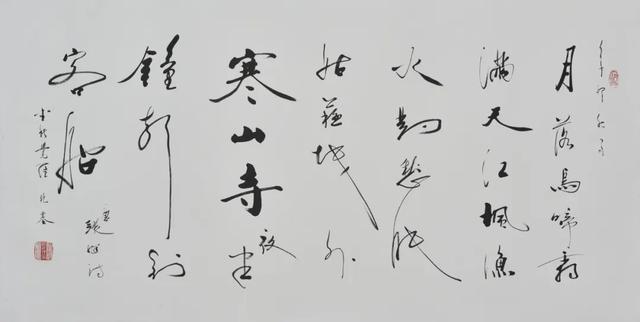 月落烏啼霜
滿天江楓漁
火對愁眠
姑蘇城外
寒山寺夜半
鐘聲到
客船
唐張繼詩